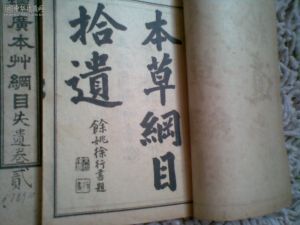 本草綱目
拾遺
餘姚徐行書題
廣本艸綱目失遺卷貳